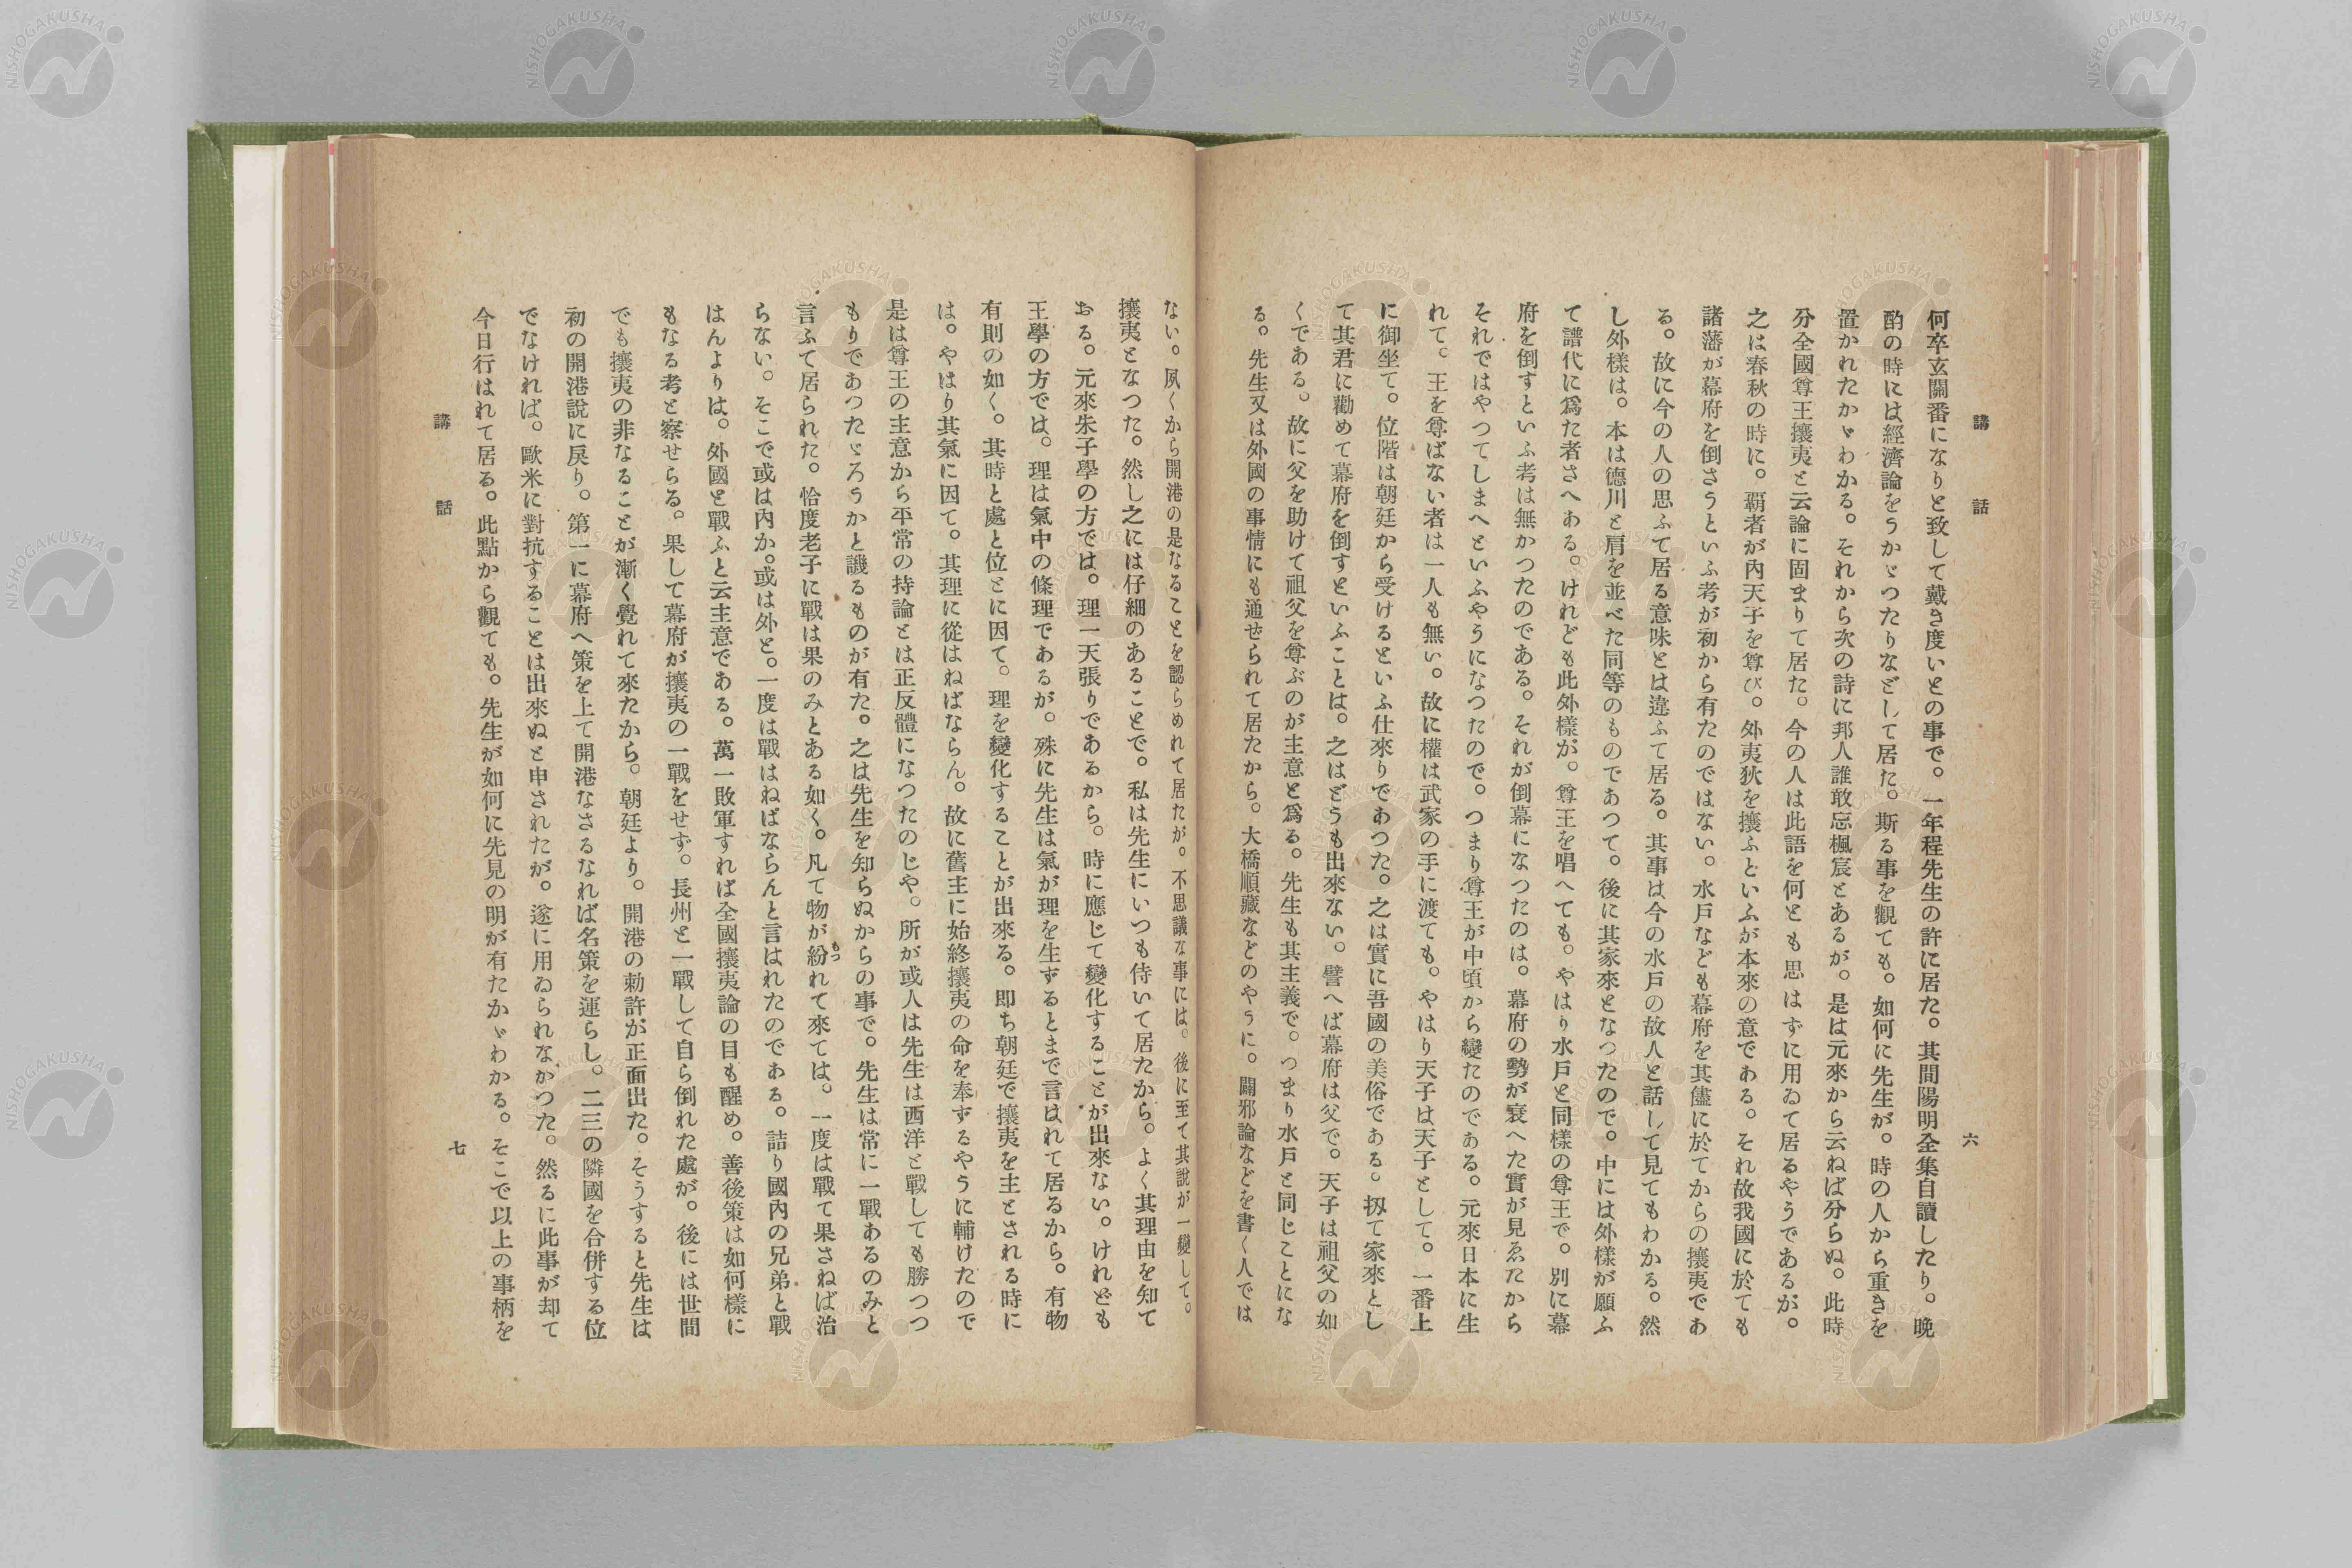 講話
六
何卒玄關番になりと致して戴き度いとの事で。一年程先生の許に居た。其間陽明全集自讀したり。晩
酌の時には經濟論をうかゞつたりなどして居た。斯る事を觀ても。如何に先生が。時の人から重きを
置かれたかゞわかる。それから次の詩に邦人誰敢忘楓宸とあるが。是は元來から云ねば分らぬ。此時
分全國尊王攘夷と云論に固まりて居た。今の人は此語を何とも思はずに用ゐて居るやうであるが。
之は春秋の時に。覇者が內天子を尊び。外夷狄を攘ふといふが本來の意である。それ故我國に於ても
諸藩が幕府を倒さうといふ考が初から有たのではない。水戸なども幕府を其儘に於てからの攘夷であ
る。故に今の人の思ふて居る意味とは違ふて居る。其事は今の水戸の故人と話して見てもわかる。然
し外樣は。本は德川と肩を並べた同等のものであつて。後に其家來となつたので。中には外樣が願ふ
て譜代に爲た者さへある。けれども此外樣が。尊王を唱へても。やはり水戸と同樣の尊王で。別に幕
府を倒すといふ考は無かつたのである。それが倒幕になつたのは。幕府の勢が衰へた實が見ゑたから
それではやつてしまへといふやうになつたので。つまり尊王が中頃から變たのである。元來日本に生
れて。王を尊ばない者は一人も無い。故に權は武家の手に渡ても。やはり天子は天子として。一番上
に御坐て。位階は朝廷から受けるといふ仕來りであつた。之は實に吾國の美俗である。扨て家來とし
て其君に勸めて幕府を倒すといふことは。之はどうも出來ない。譬へば幕府は父で。天子は祖父の如
くである。故に父を助けて祖父を尊ぶのが主意と爲る。先生も其主義で。つまり水戸と同じことにな
る。先生又は外國の事情にも通せられて居たから。大橋順藏などのやうに。闢邪論などを書く人では
ない。夙くから開港の是なることを認らめれて居たが。不思議な事には。後に至て其說が一變して。
攘夷となつた。然し之には仔細のあることで。私は先生にいつも侍いて居たから。よく其理由を知て
おる。元來朱子學の方では。理一天張りであるから。時に應じて變化することが出來ない。けれども
王學の方では。理は氣中の條理であるが。殊に先生は氣が理を生ずるとまで言はれて居るから。有物
有則の如く。其時と處と位とに因て。理を變化することが出來る。即ち朝廷で攘夷を主とされる時に
は。やはり其氣に因て。其理に從はねばならん。故に舊主に始終攘夷の命を奉ずるやうに輔けたので
是は尊王の主意から平常の持論とは正反體になつたのじや。所が或人は先生は西洋と戰しても勝つつ
もりであつたゞろうかと譏るものが有た。之は先生を知らぬからの事で。先生は常に一戰あるのみと
言ふて居られた。恰度老子に戰は果のみとある如く。凡て物が紛れて來ては。一度は戰て果さねば治
らない。そこで或は內か。或は外と。一度は戰はねばならんと言はれたのである。詰り國內の兄弟と戰
はんよりは。外國と戰ふと云主意である。萬一敗軍すれば全國攘夷論の目も醒め。善後策は如何樣に
もなる考と察せらる。果して幕府が攘夷の一戰をせず。長州と一戰して自ら倒れた處が。後には世間
でも攘夷の非なることが漸く覺れて來たから。朝廷より。開港の勅許が正面出た。そうすると先生は
初の開港說に戻り。第一に幕府へ策を上て開港なさるなれば名策を運らし。二三の隣國を合併する位
でなければ。歐米に對抗することは出來ぬと申されたが。遂に用ゐられなかつた。然るに此事が却て
今日行はれて居る。此點から觀ても。先生が如何に先見の明が有たかゞわかる。そこで以上の事柄を
講話
七